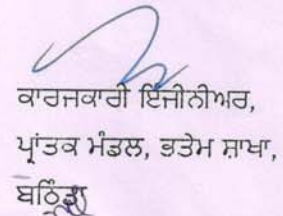 ਕਾਰਜਕਾਰੀ ਇੰਜੀਨੀਅਰ,
ਪ੍ਰਾਂਤਕ ਮੰਡਲ, ਭਤੇਮ ਸ਼ਾਖਾ,
ਬਠਿੰਡਾ